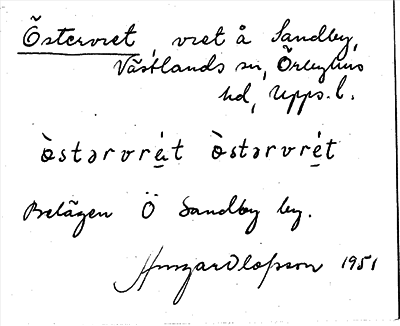 Östervret, vret å Sandby,
Västlands sn, Örbyhus
hd, Upps. l.
òstərvrét òstərvrét
Belägen Ö Sandby by.
Olofsson 1951